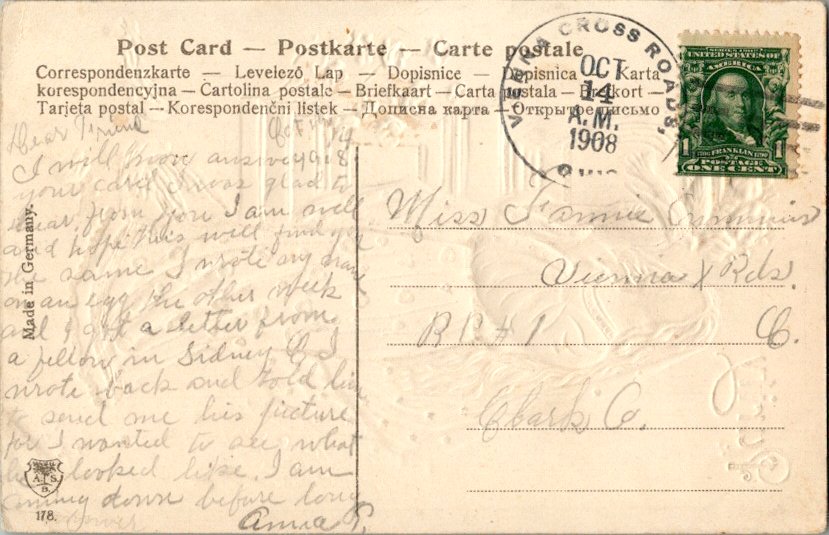 Post Card — Postkarte — Carte postale
Correspondenzkarte — Levelező Lap — Dopisnice — Dopisnica — Karta
korespondencyjna — Cartolina postale — Briefkaart — Carta postala — Brefkort —
Tarjeta postal — Korespondenční listek — Дописна карта — Открытое письмо
VIENNA CROSS ROADS,
OCT
14
A.M.
1908
OHIO
SERIES 1902
UNITED STATES OF
AMERICA
1 FRANKLIN 1
POSTAGE
ONE CENT
Made in Germany.
Dear Friend
I will now answer
your card I was glad to
hear from you I am well
and hope this will find you
the same I wrote my name
on an egg the other week
and I got a letter from
a fellow in Sidney O. I
wrote back and told him
to send me his picture
for I wanted to see what
he looked like. I am
coming down before long
answer
Anna P.
A. S.
B.
178.
Miss Fannie
Vienna X Rds.
RR#1 O.
Clark Co.